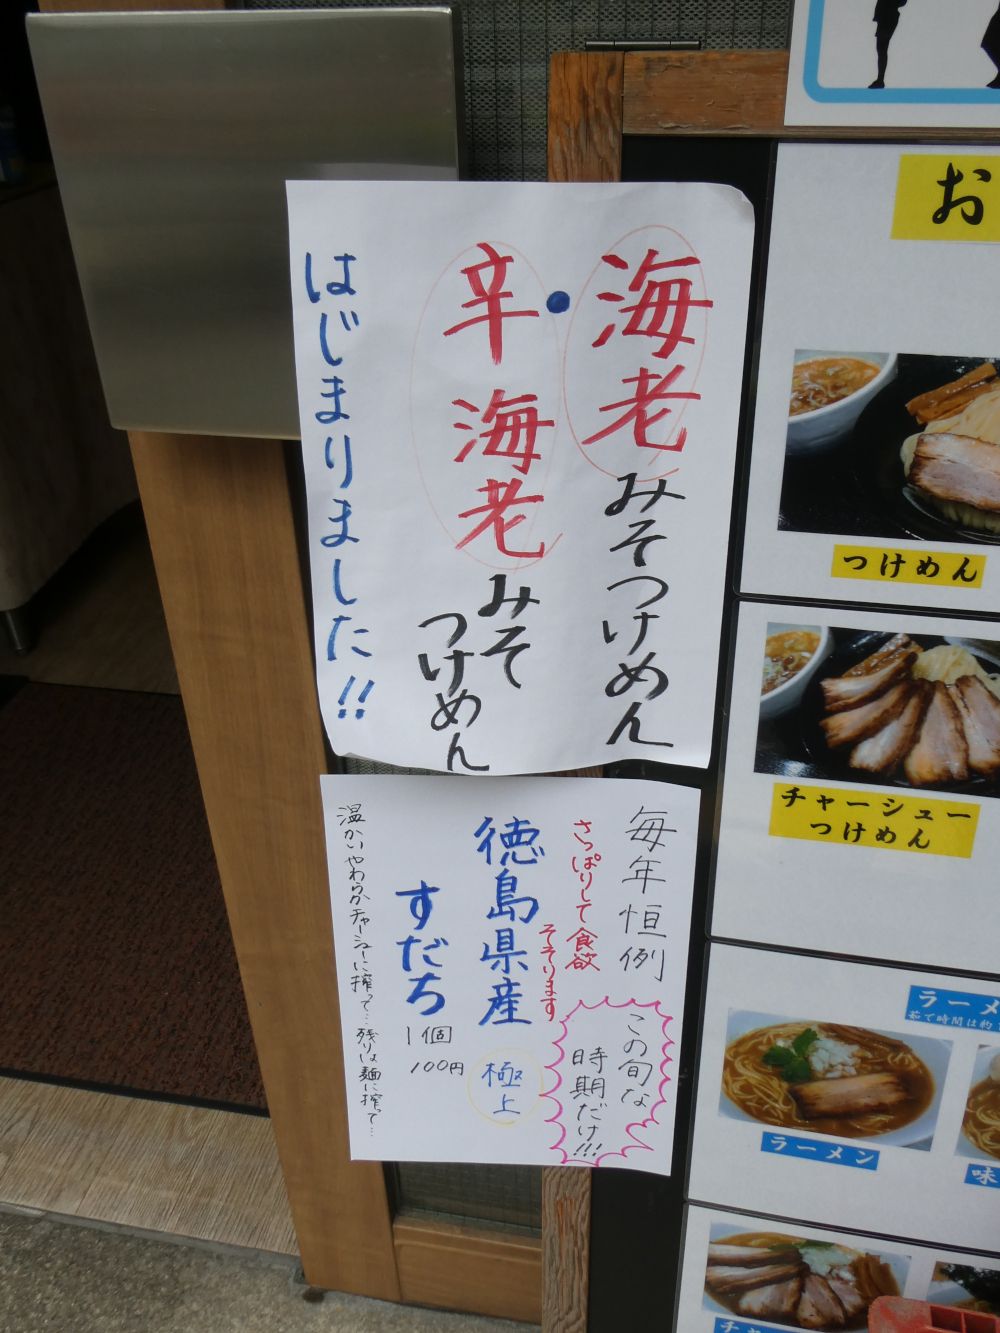 海老みそつけめん
・
辛海老みそ
つけめん
はじまりました!!
毎年恒例
この旬な
時期だけ!!!
さっぱりして食欲
そそります
徳島県産
極上
すだち
1個
100円
温かいやわらかチャーシューに搾って…残りは麺に搾って…
お
つけめん
チャーシュー
つけめん
ラーメ
茹で時間は約
ラーメン
味